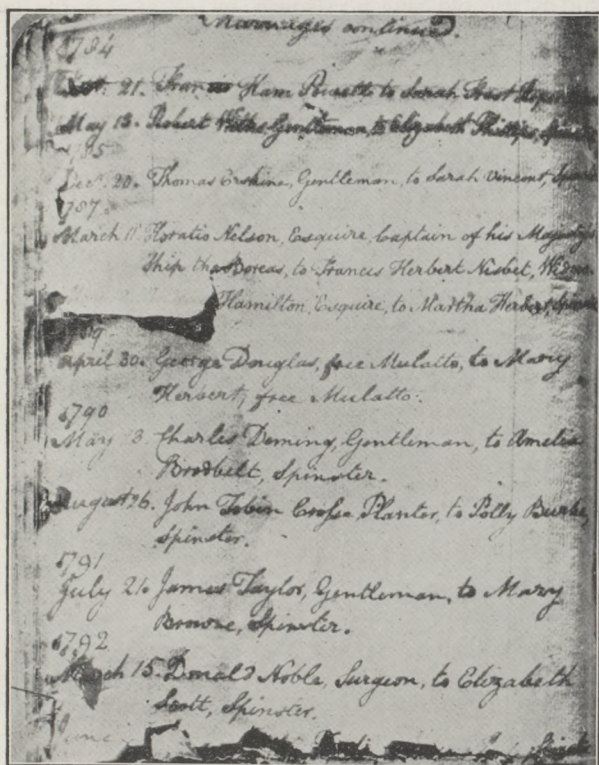 Marriages continued.
1784
21. Francis Ham to Sarah
May 13. Robert Gentleman, to Elizabeth Phillips,
1785
Decr. 20. Thomas Erskine, Gentleman, to Sarah Vincent,
1787
March 11 Horatio Nelson, Esquire, Captain of his Majesty's
Ship the Boreas, to Frances Herbert Nisbet,
Hamilton, Esquire, to Martha Herbert,
1789
April 30. George Douglas, free Mulatto, to Mary
Herbert, free Mulatto.
1790
May 3 Charles Deming, Gentleman, to Amelia
Brodbelt, Spinster.
August 26. John Tobin Crosse Planter, to Polly Burke,
Spinster.
1791
July 21. James Taylor, Gentleman, to Mary
Browne, Spinster.
1792
March 15. Donald Noble, Surgeon, to Elizabeth
Scott, Spinster.
June